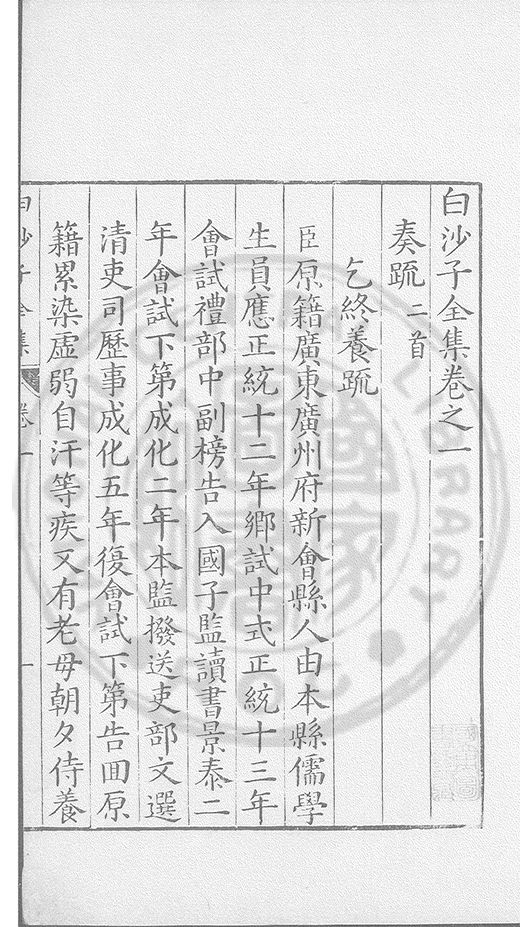 白沙子全集卷之一
奏疏二首
乞終養疏
臣原籍廣東廣州府新會縣人由本縣儒學
生員應正統十二年鄉試中式正統十三年
會試禮部中副榜告入國子監讀書景泰二
年會試下第成化二年本監撥送吏部文選
清吏司歷事成化五年復會試下第告回原
籍累染虛弱自汗等疾又有老母朝夕侍養
白沙子全集 卷一 一
LIBRARY